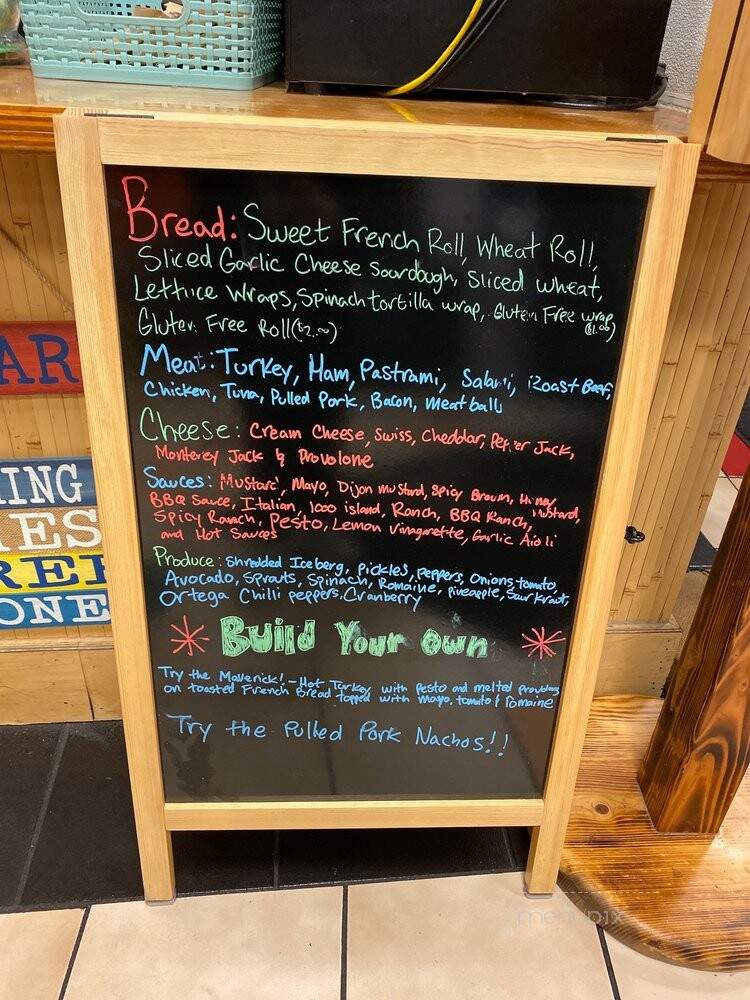 Bread: Sweet French Roll, Wheat Roll,
Sliced Garlic Cheese Sourdough, Sliced wheat,
Lettuce Wraps, Spinach tortilla wrap, Gluten Free wrap
($1.00)
Gluten Free Roll ($2.00)
Meat: Turkey, Ham, Pastrami, Salami, Roast Beef,
Chicken, Tuna, Pulled Pork, Bacon, Meatball
Cheese: Cream Cheese, Swiss, Cheddar, Pepper Jack,
Monterey Jack & Provolone
Sauces: Mustard, Mayo, Dijon mustard, Spicy Brown, Honey Mustard,
BBQ Sauce, Italian, 1000 island, Ranch, BBQ Ranch,
Spicy Ranch, Pesto, Lemon Vinagarette, Garlic Aioli
and Hot Sauces
Produce: Shredded Iceberg, pickles, peppers, Onions, tomato,
Avocado, Sprouts, Spinach, Romaine, pineapple, Saurkraut,
Ortega Chilli peppers, Cranberry
Build Your Own
Try the Maverick! - Hot Turkey with pesto and melted provolone
on toasted French Bread topped with mayo, tomato & Romaine
Try the Pulled Pork Nachos!!
AR
ING
ES
REE
ONE